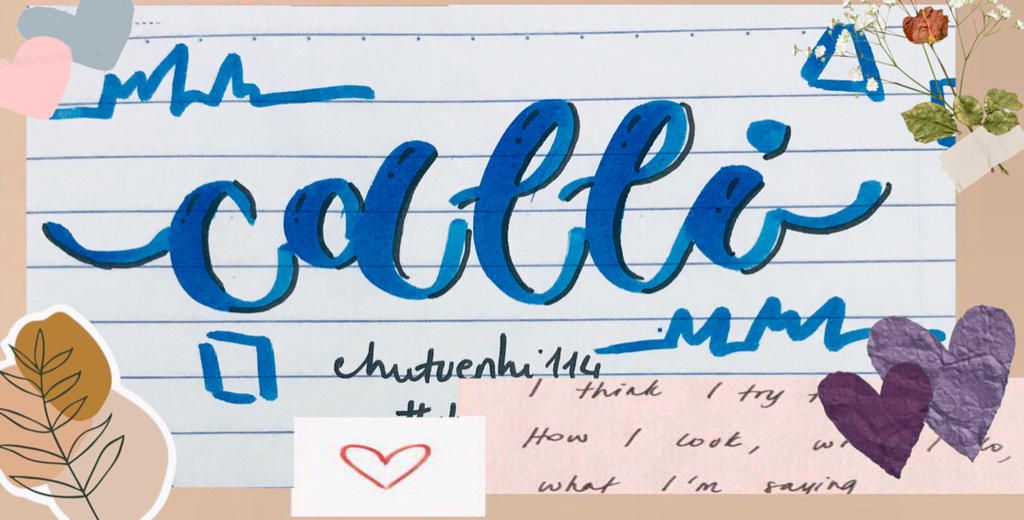 calli
chutuenhi114
I think I try
How I look,
what I'm saying